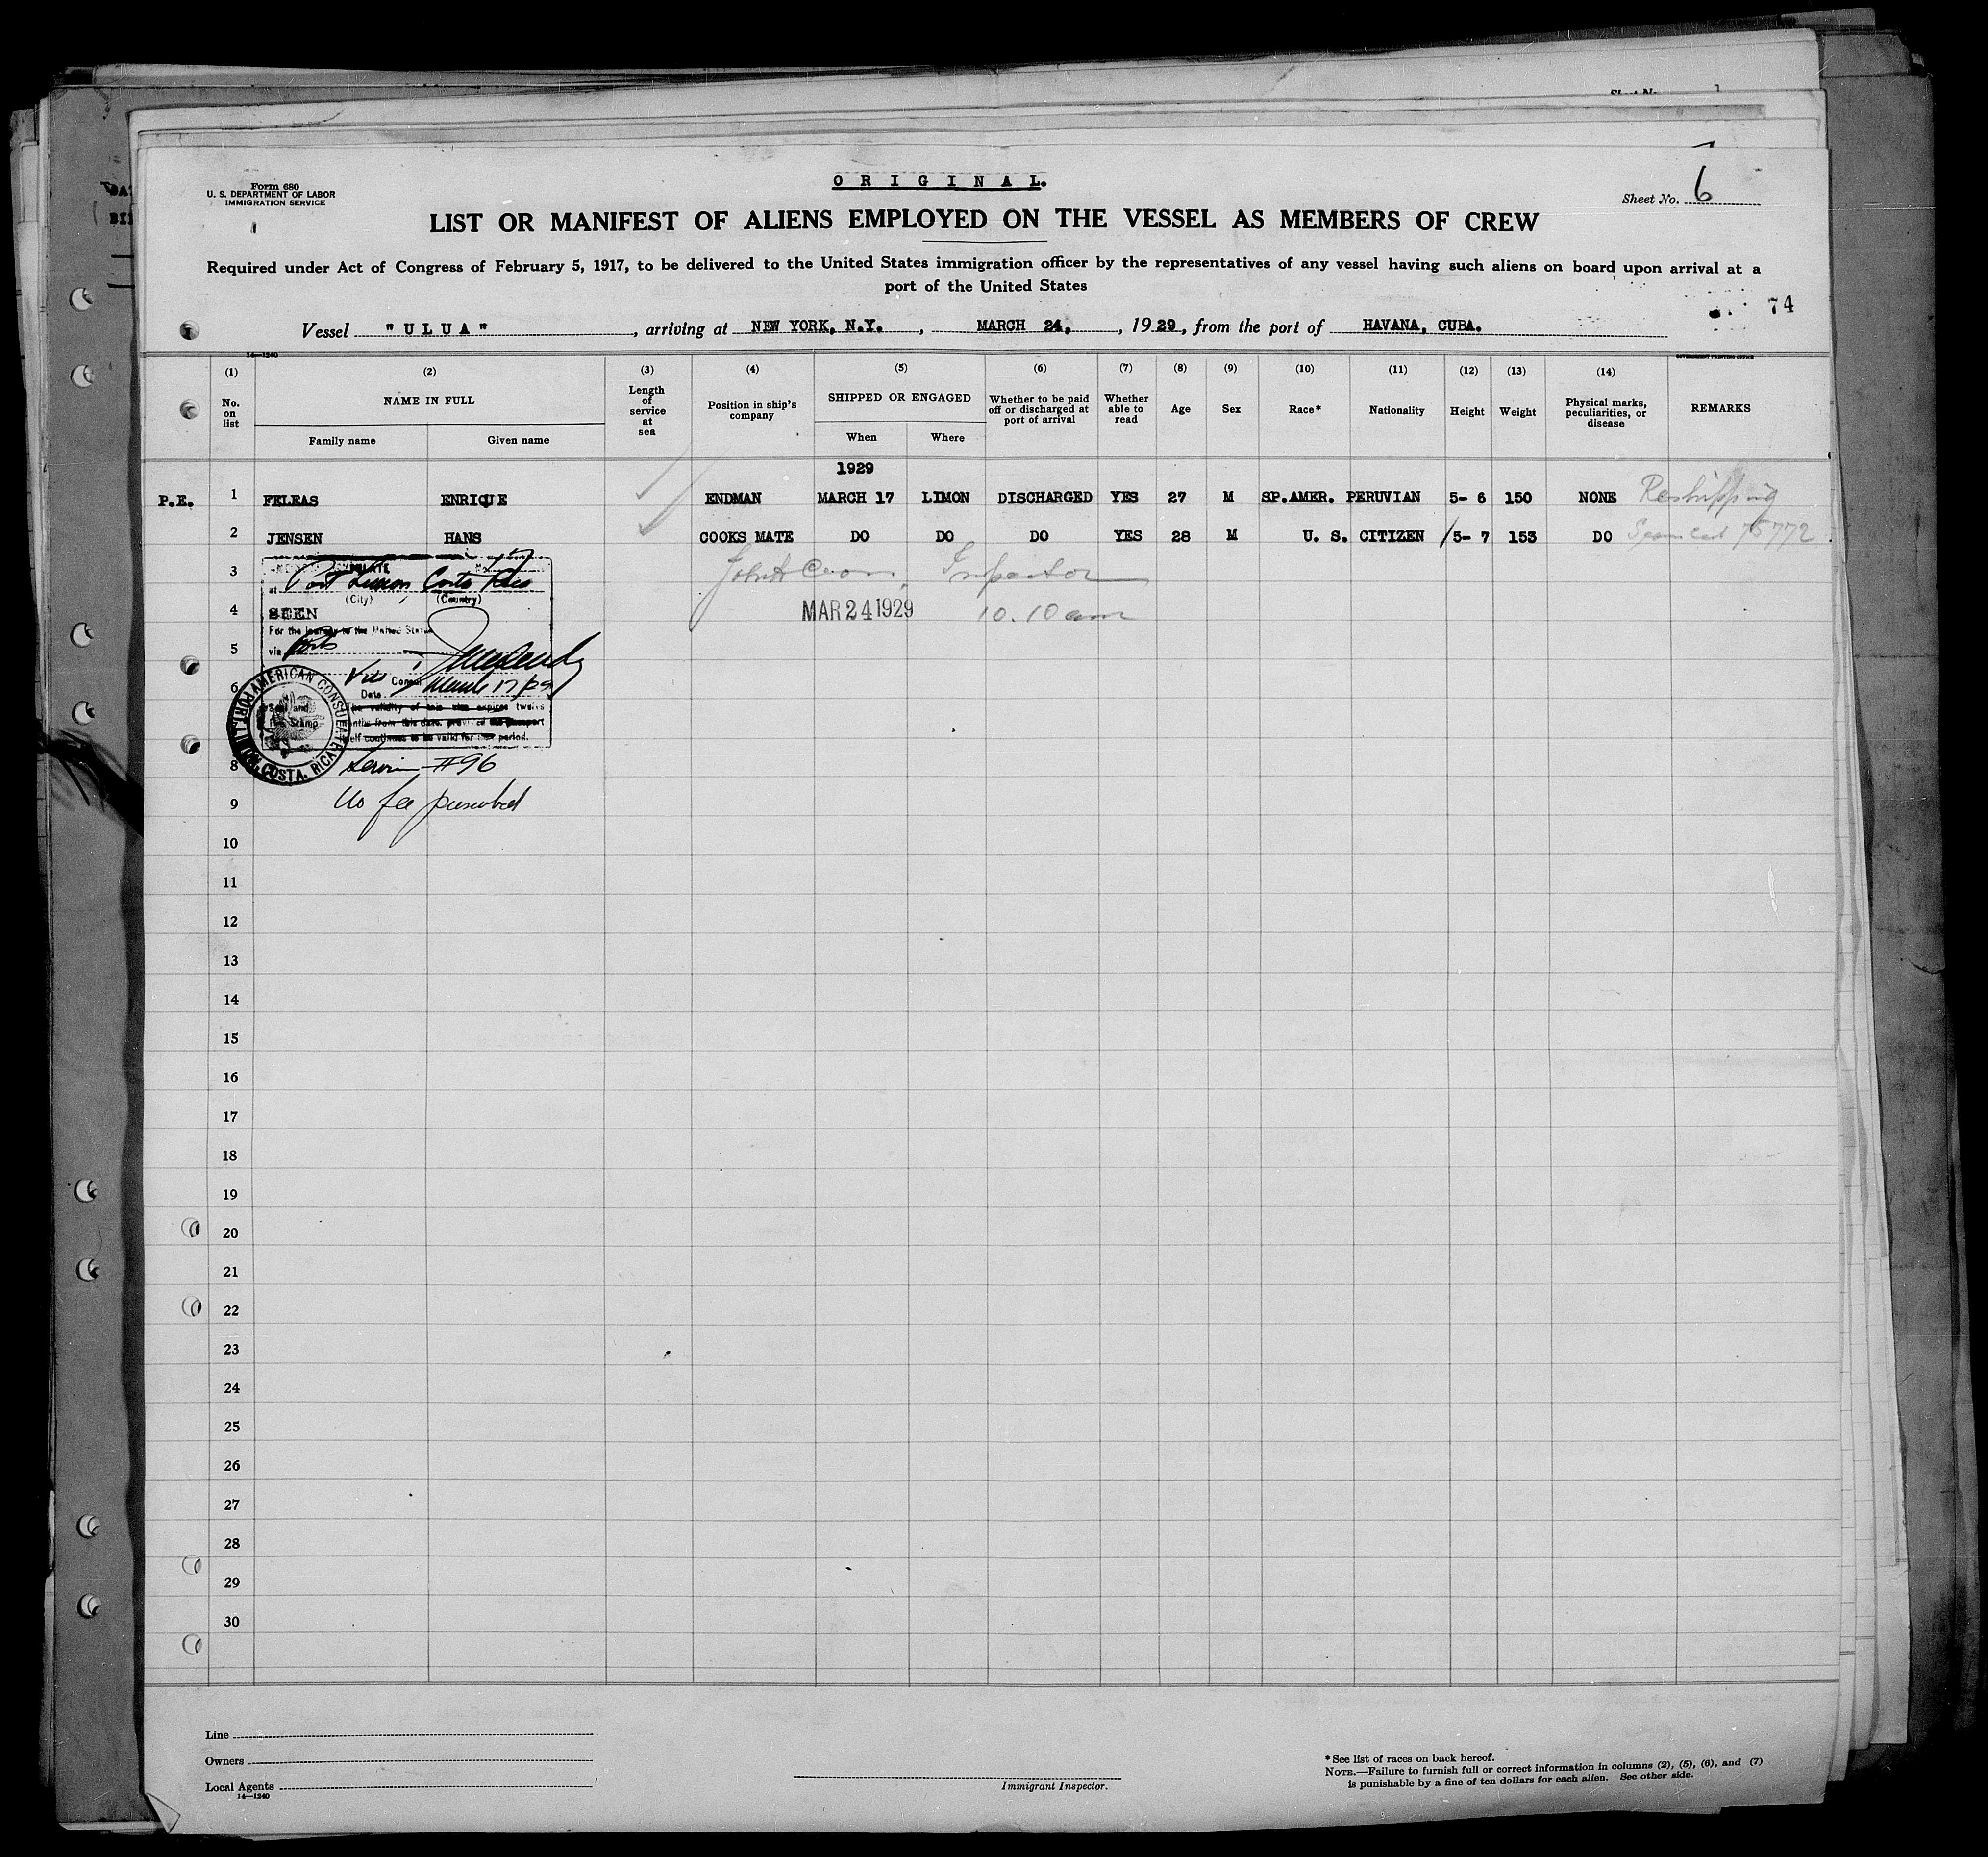 Form 680
U. S. DEPARTMENT OF LABOR
IMMIGRATION SERVICE
ORIGINAL.
Sheet No. 6
LIST OR MANIFEST OF ALIENS EMPLOYED ON THE VESSEL AS MEMBERS OF CREW
Required under Act of Congress of February 5, 1917, to be delivered to the United States immigration officer by the representatives of any vessel having such aliens on board upon arrival at a
port of the United States
74
Vessel "ULUA", arriving at NEW YORK, N.Y., MARCH 24, 1929, from the port of HAVANA, CUBA.
14—1240 GOVERNMENT PRINTING OFFICE
(1) (2) (3) (4) (5) (6) (7) (8) (9) (10) (11) (12) (13) (14)
No. on list NAME IN FULL Length of service at sea Position in ship's company SHIPPED OR ENGAGED Whether to be paid off or discharged at port of arrival Whether able to read Age Sex Race* Nationality Height Weight Physical marks, peculiarities, or disease REMARKS
Family name Given name When Where
1929
P.E. 1 FELEAS ENRIQUE ENDMAN MARCH 17 LIMON DISCHARGED YES 27 M SP.AMER. PERUVIAN 5- 6 150 NONE Reshipping
2 JENSEN HANS COOKS MATE DO DO DO YES 28 M U. S. CITIZEN 5- 7 153 DO 75772
3 Inspector
at Port Limon Costa Rica
(City) (Country)
4 SEEN MAR 24 1929 10.10 am
For the journey to the United States
5 via
6 Vice Consul
Date March 17/29
Seal and Fee Stamp
The validity of this visa expires twelve
months from this date, provided the passport
itself continues to be valid for this period.
AMERICAN CONSULATE PORT LIMON, COSTA RICA
8 Service #96
9 No fee prescribed
10
11
12
13
14
15
16
17
18
19
20
21
22
23
24
25
26
27
28
29
30
Line
Owners
Local Agents
14—1240
Immigrant Inspector.
*See list of races on back hereof.
NOTE.—Failure to furnish full or correct information in columns (2), (5), (6), and (7)
is punishable by a fine of ten dollars for each alien. See other side.